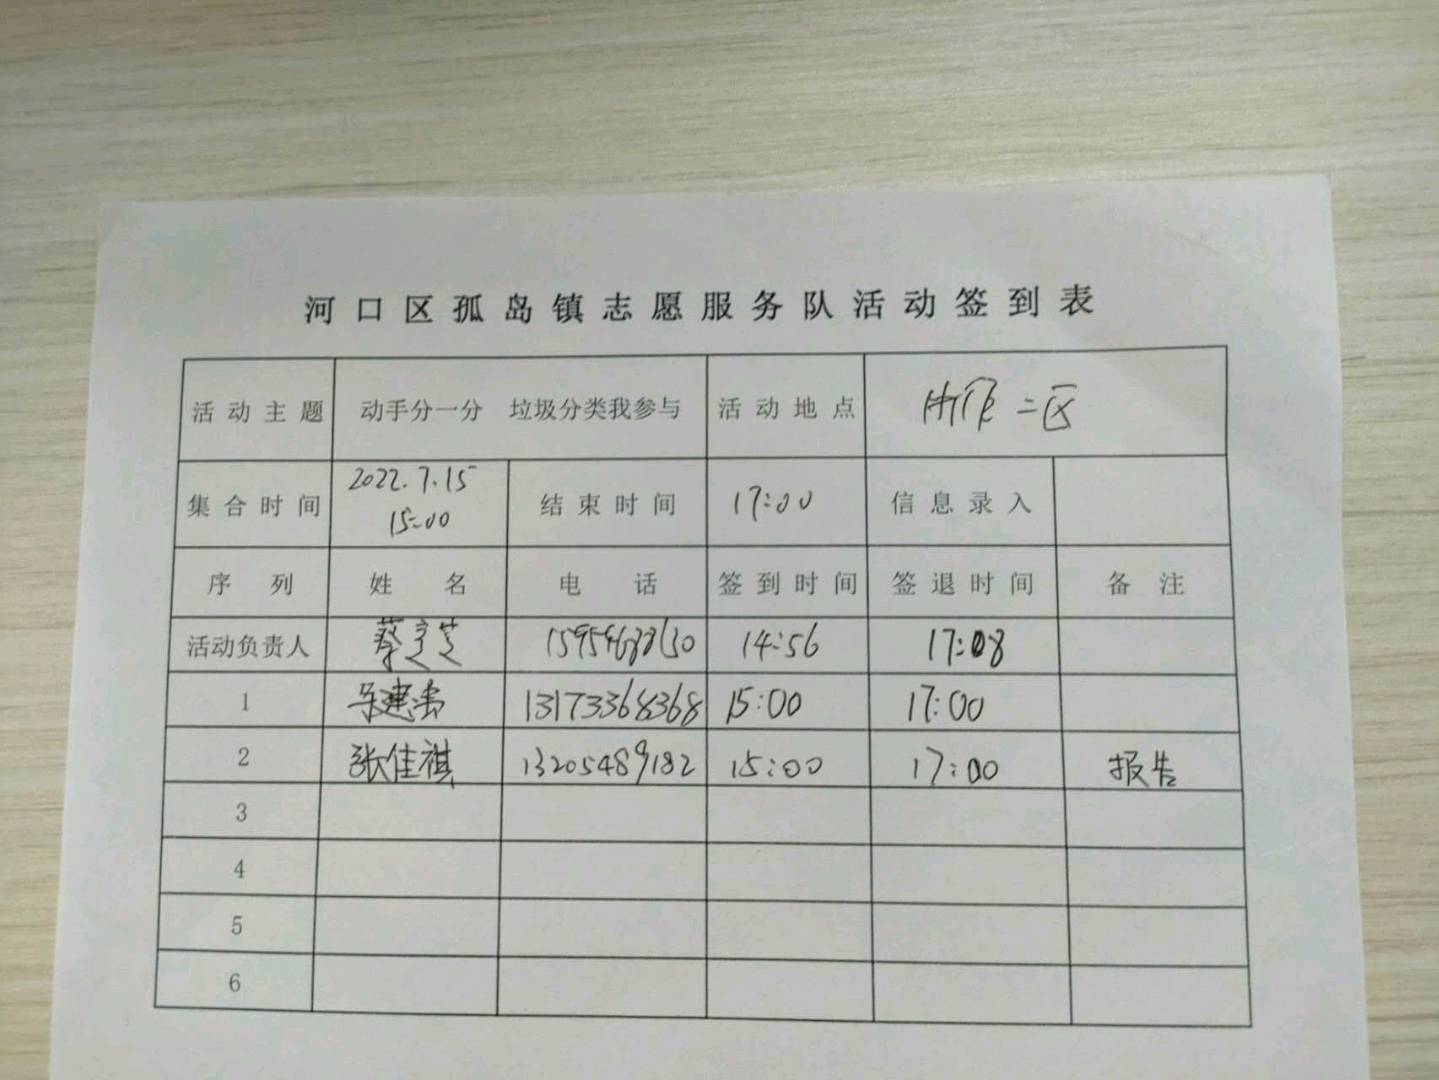 河口区孤岛镇志愿服务队活动签到表
活动主题 动手分一分 垃圾分类我参与 活动地点 二区
集合时间 2022.7.15 15:00 结束时间 17:00 信息录入
序列 姓名 电话 签到时间 签退时间 备注
活动负责人 蔡 14:56 17:08
1 建 13173368368 15:00 17:00
2 张佳祺 13205489182 15:00 17:00 报告
3
4
5
6